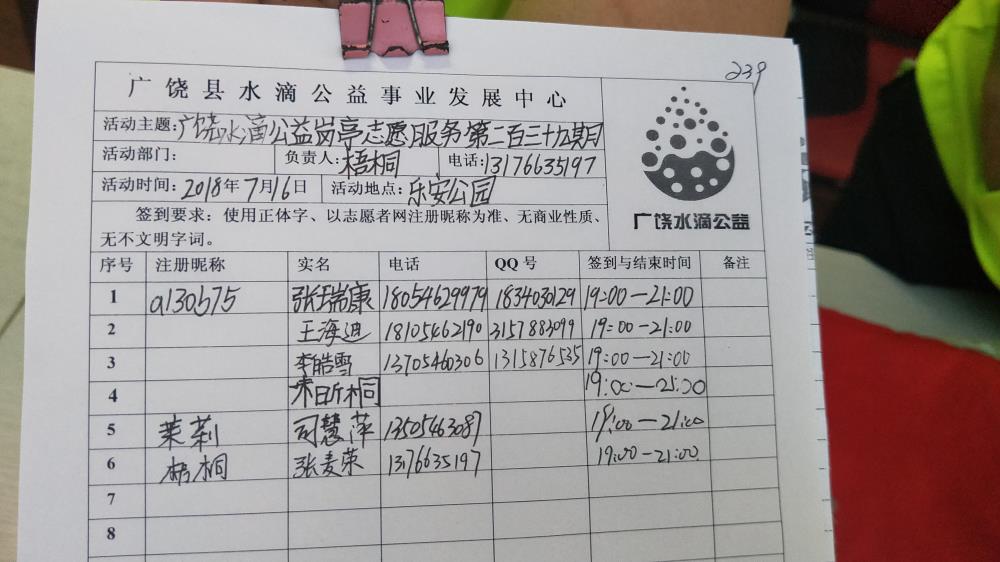 239
广饶县水滴公益事业发展中心
活动主题:广饶水滴公益岗亭志愿服务第二百三十九期
活动部门: 负责人:梧桐 电话:13176635197
活动时间:2018年7月16日 活动地点:乐安公园
签到要求:使用正体字、以志愿者网注册昵称为准、无商业性质、
无不文明字词。
广饶水滴公益
序号 注册昵称 实名 电话 QQ号 签到与结束时间 备注
1 a130b75 张瑞康 18054629979 1834030129 19:00—21:00
2 王海迪 18105462190 3157883099 19:00—21:00
3 李皓雪 13705460306 1315876535 19:00—21:00
4 昕桐 19:00—21:00
5 茉莉 司慧萍 13505463087 19:00—21:00
6 梧桐 张麦荣 13176635197 19:00—21:00
7
8